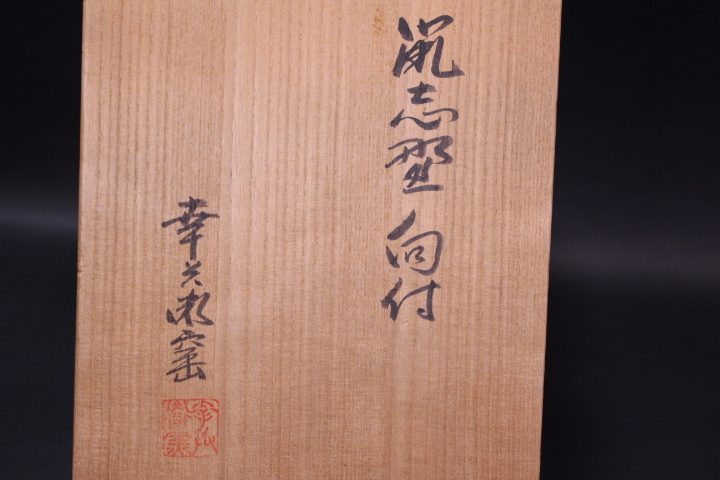 鼡志野 向付
幸兵衛窯